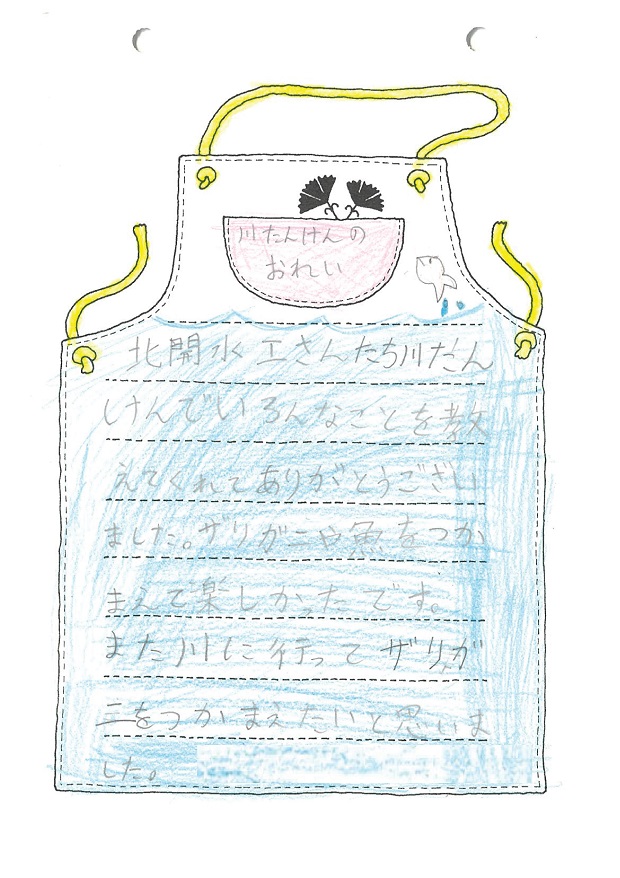 川たんけんの
おれい
北開水工さんたち川だん
けんでいろんなことを教
えてくれてありがとうござい
ました。ザリガニや魚をつか
まえて楽しかったです。
また川に行ってザリガ
ニをつかまえたいと思いま
した。